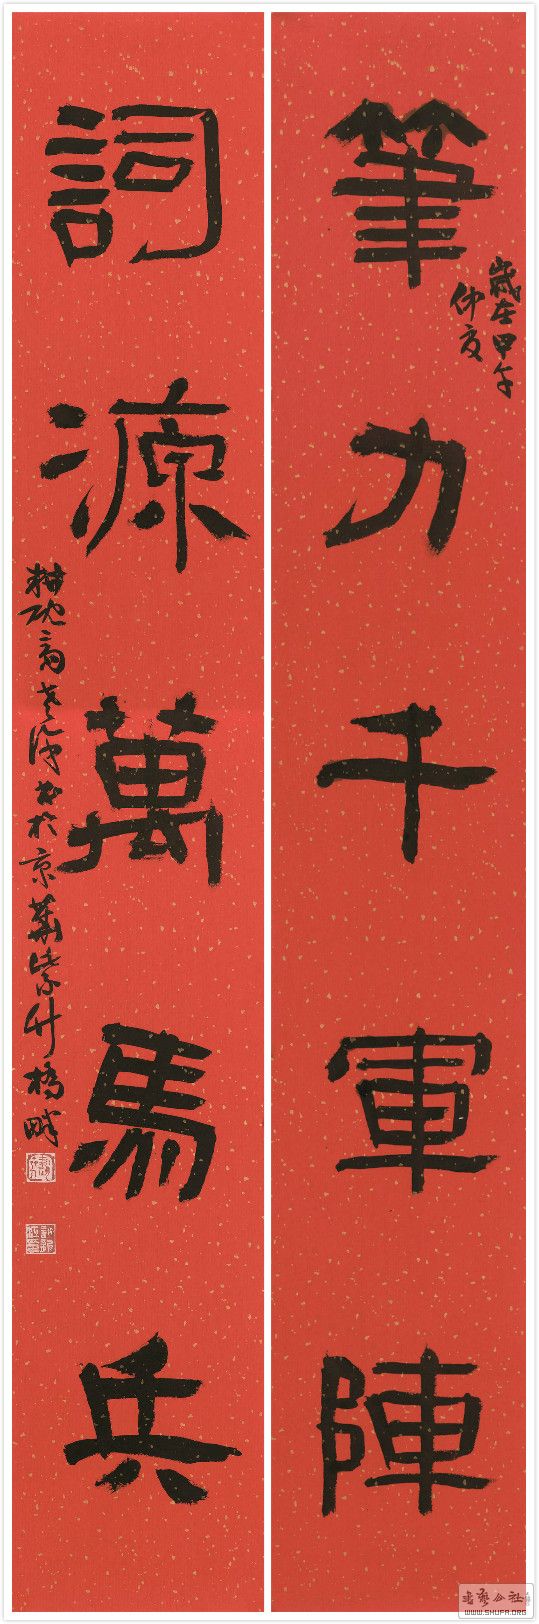 筆力千軍陣
歲在甲午
仲夏
詞源萬馬兵
耕硯齋老泽書於京華紫竹橋畔
書法公社
WWW.SHUFA.ORG